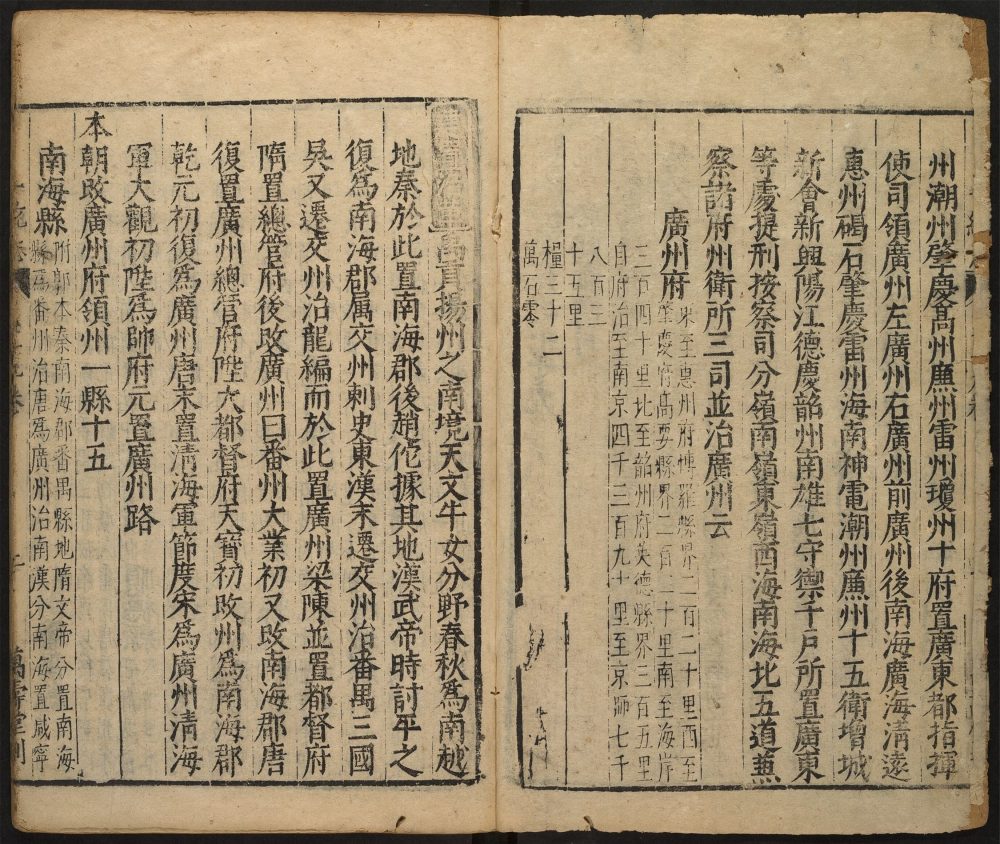 州潮州肇慶高州廉州雷州瓊州十府置廣東都指揮
使司領廣州左廣州右廣州前廣州後南海廣海清遠
惠州碣石肇慶雷州海南神電潮州廉州十五衛增城
新會新興陽江德慶韶州南雄七守禦千戶所置廣東
等處提刑按察司分嶺南嶺東嶺西海南海北五道兼
察諸府州衛所三司並治廣州云
廣州府
東至惠州府博羅縣界二百二十里西至
肇慶府高要縣界二百二十里南至海岸
三百四十里北至韶州府英德縣界三百五里
自府治至南京四千三百九十里至京師七千
八百三
十五里
糧三十二
萬石零
禹貢揚州之南境天文牛女分野春秋為南越
地秦於此置南海郡後趙佗據其地漢武帝時討平之
復為南海郡属交州刺史東漢末遷交州治番禺三國
吳又遷交州治龍編而於此置廣州梁陳並置都督府
隋置總管府後改廣州曰番州大業初又改南海郡唐
復置廣州總管府陞大都督府天寶初改州為南海郡
乾元初復為廣州唐末置清海軍節度宋為廣州清海
軍大觀初陞為帥府元置廣州路
本朝改廣州府領州一縣十五
南海縣
附郭本秦南海郡番禺縣地隋文帝分置南海
縣為番州治唐為廣州治南漢分南海置咸寧